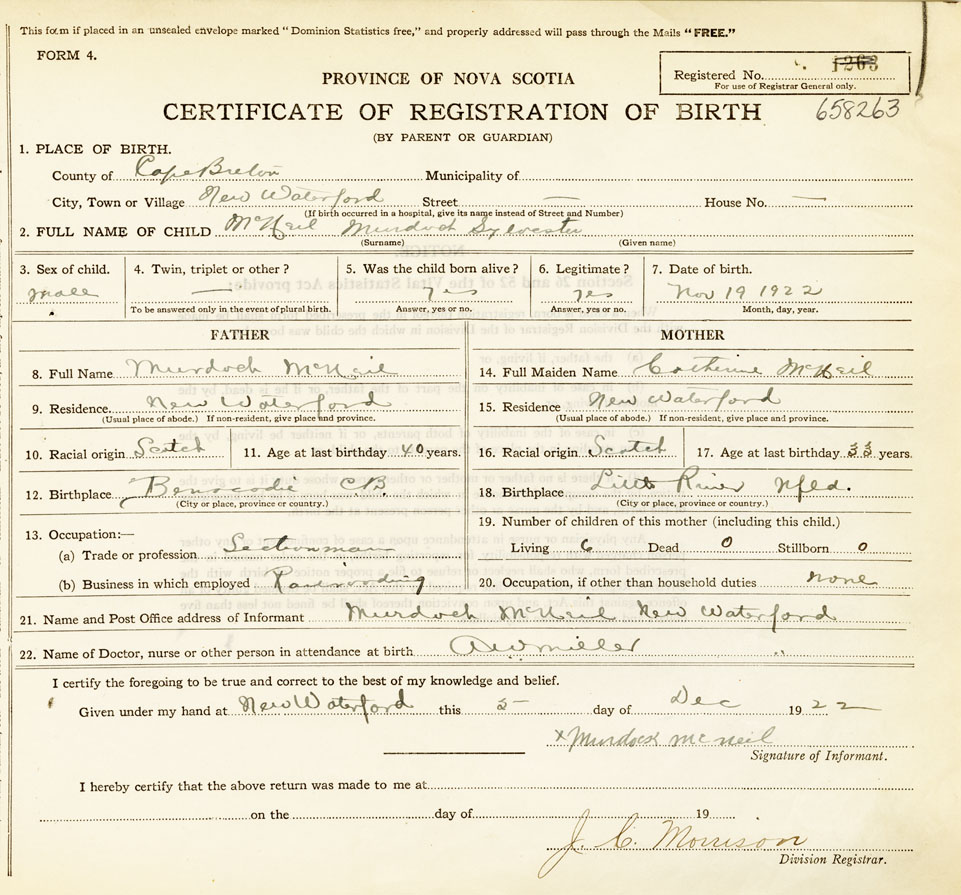 This form if placed in an unsealed envelope marked "Dominion Statistics free," and properly addressed will pass through the Mails "FREE."
FORM 4.
Registered No. 1263
For use of Registrar General only.
PROVINCE OF NOVA SCOTIA
CERTIFICATE OF REGISTRATION OF BIRTH 658263
(BY PARENT OR GUARDIAN)
1. PLACE OF BIRTH.
County of Cape Breton Municipality of
City, Town or Village New Waterford Street — House No. —
(If birth occurred in a hospital, give its name instead of Street and Number)
2. FULL NAME OF CHILD McNeil Murdoch Sylvester
(Surname) (Given name)
3. Sex of child. 4. Twin, triplet or other? 5. Was the child born alive? 6. Legitimate? 7. Date of birth.
male — yes yes Nov 19 1922
To be answered only in the event of plural birth. Answer, yes or no. Answer, yes or no. Month, day, year.
FATHER MOTHER
8. Full Name Murdoch McNeil 14. Full Maiden Name Catherine McNeil
9. Residence New Waterford 15. Residence New Waterford
(Usual place of abode.) If non-resident, give place and province. (Usual place of abode.) If non-resident, give place and province.
10. Racial origin Scotch 11. Age at last birthday 40 years. 16. Racial origin Scotch 17. Age at last birthday 33 years.
12. Birthplace C.B. 18. Birthplace Little River Nfld.
(City or place, province or country.) (City or place, province or country.)
13. Occupation:— 19. Number of children of this mother (including this child.)
(a) Trade or profession Sectionman Living 6 Dead 0 Stillborn 0
(b) Business in which employed Railroading 20. Occupation, if other than household duties none
21. Name and Post Office address of Informant Murdoch McNeil New Waterford
22. Name of Doctor, nurse or other person in attendance at birth A W Miller
I certify the foregoing to be true and correct to the best of my knowledge and belief.
Given under my hand at New Waterford this day of Dec 1922
x Murdock McNeil
Signature of Informant.
I hereby certify that the above return was made to me at
on the day of 19
J. C. Morrison
Division Registrar.